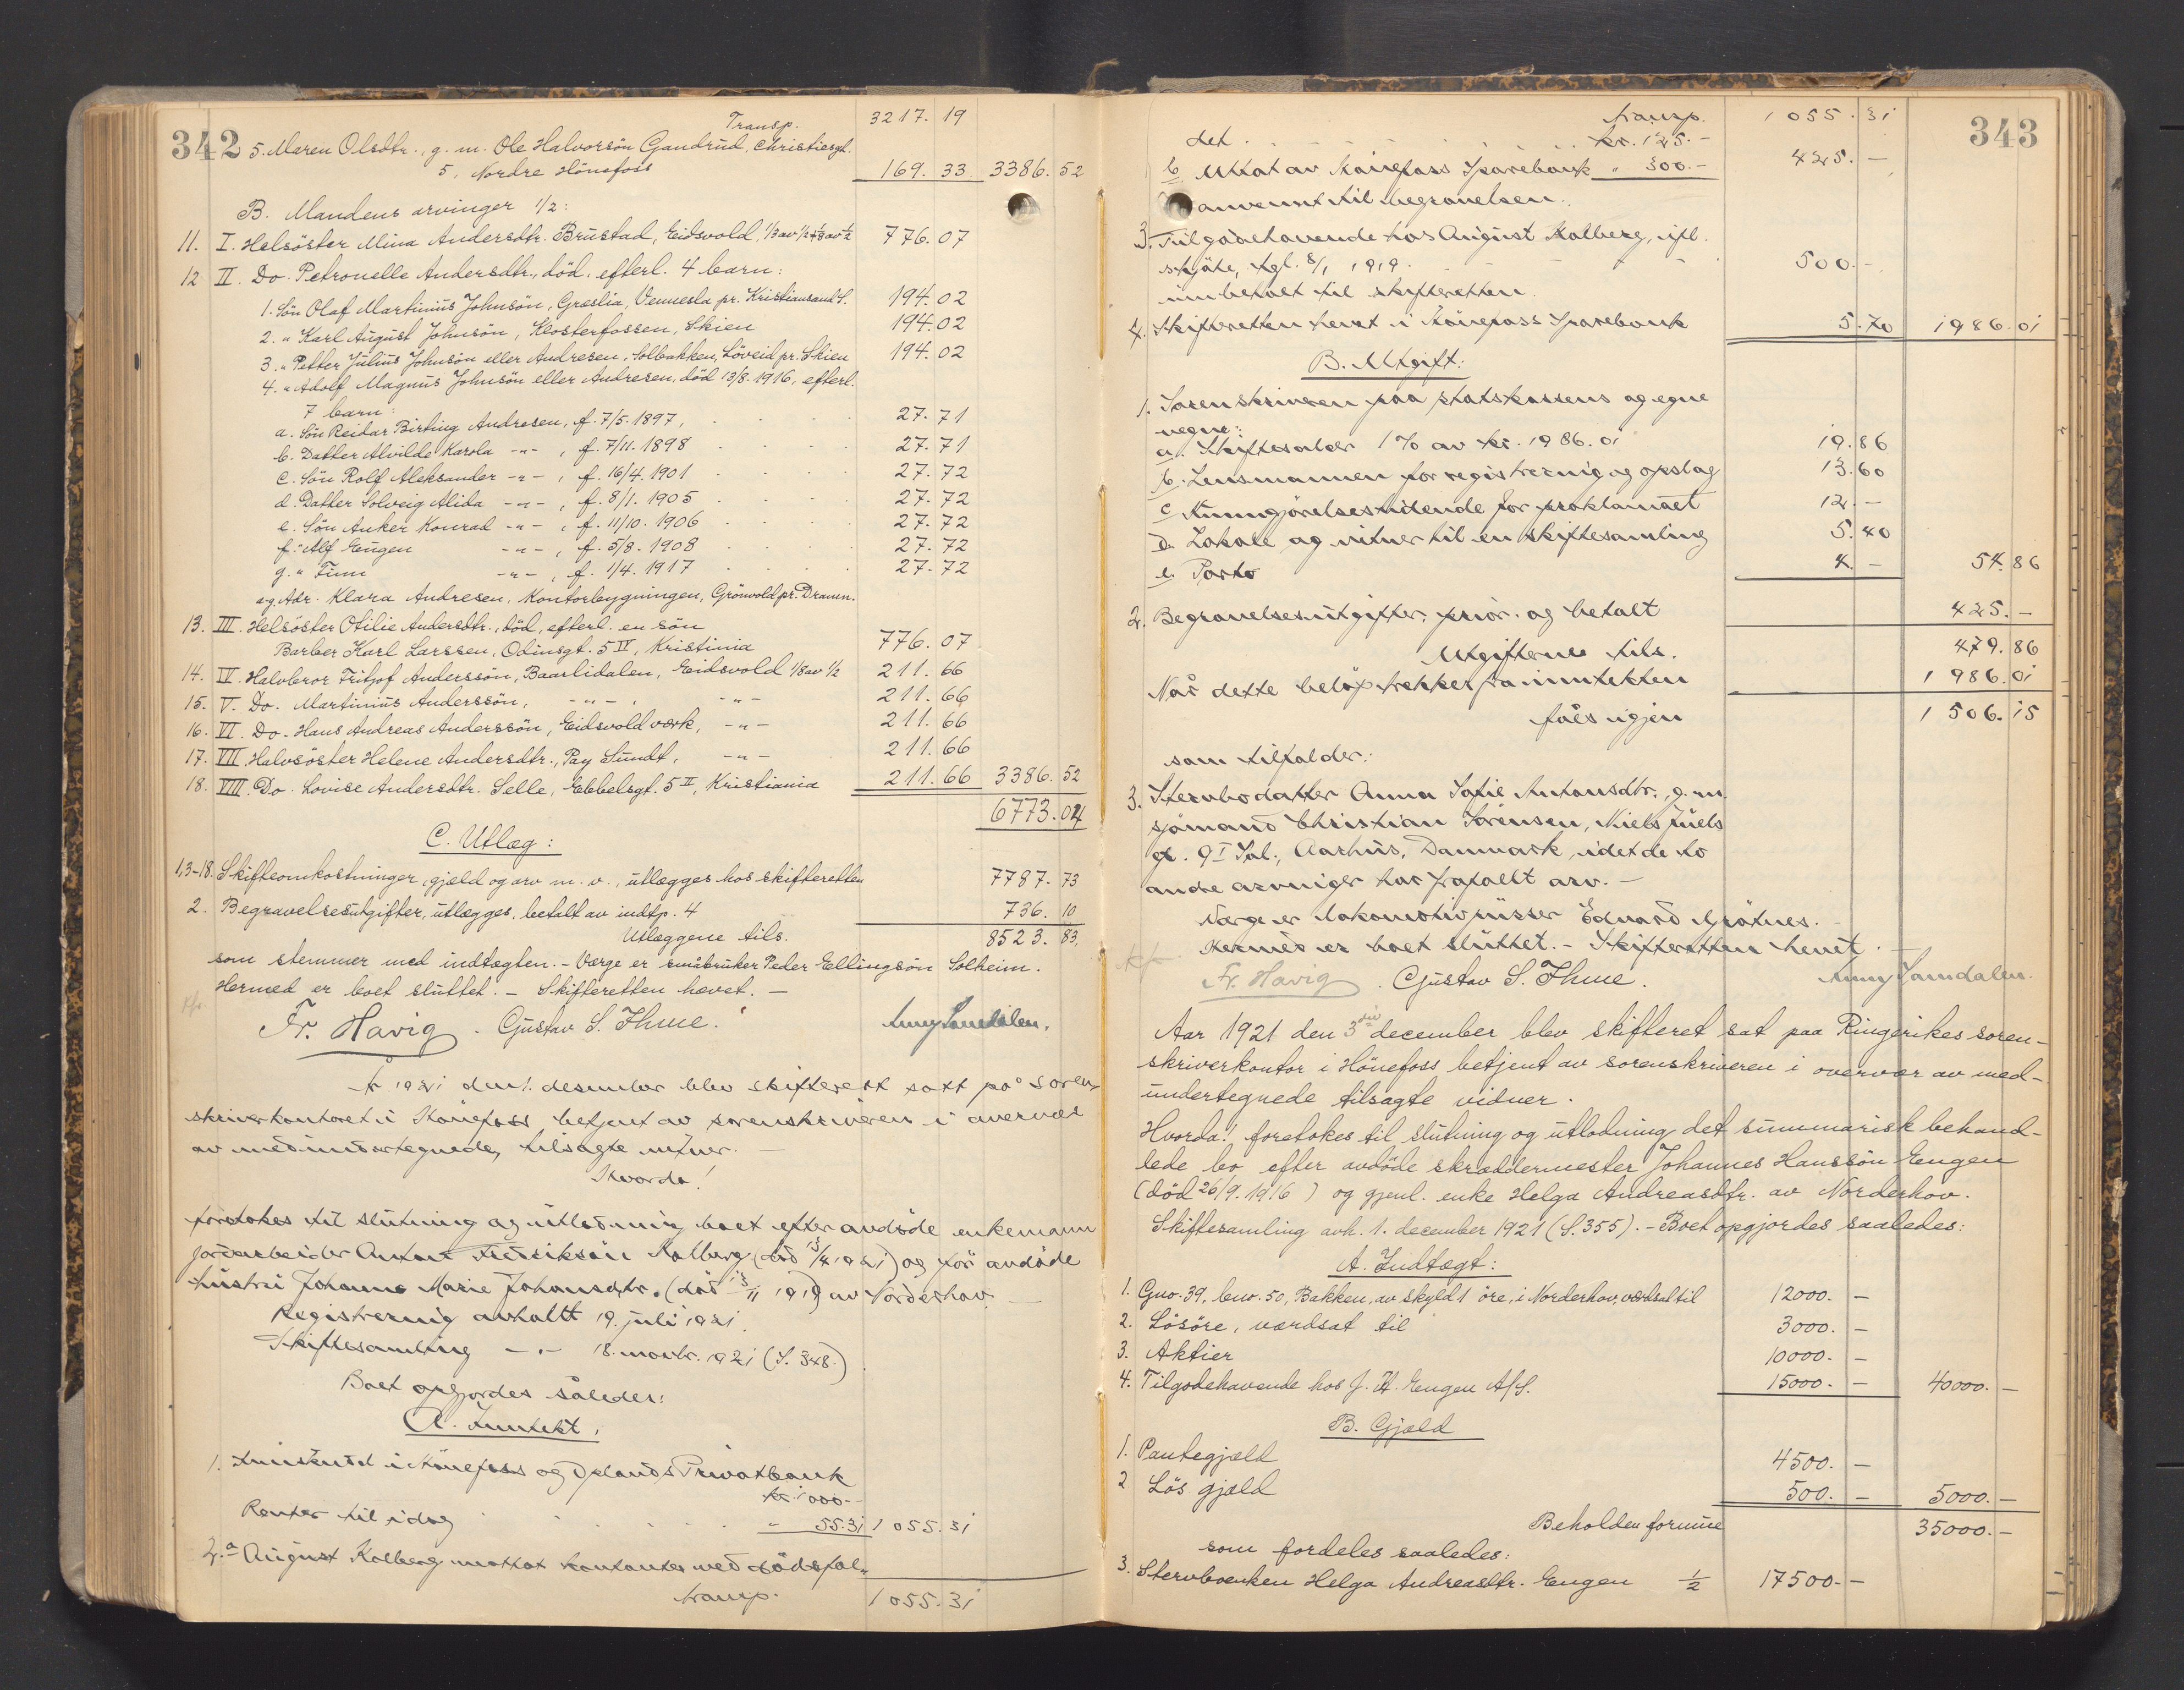 342
Transp. 3217. 19
5. Maren Olsdtr., g. m. Ole Halvorsön Gandrud, Christiesgt.
5, Nordre Hönefoss 169. 33 3386. 52
B. Mandens arvinger 1/2:
11. I. Helsöster Mina Andersdtr. Brustad, Eidsvold, 1/3 av 1/2 + 1/8 av 1/2 776. 07
12 II. Do. Petronelle Andersdtr., död, efterl. 4 barn:
1. Sön Olaf Martinius Johnsön, Greslia, Vennesla pr. Kristiansand S. 194. 02
2. " Karl August Johnsön, Klosterfossen, Skien 194. 02
3. " Petter Julius Johnsön eller Andresen, Solbakken, Löveid pr. Skien 194. 02
4. " Adolf Magnus Johnsön eller Andresen, död 13/8. 1916, efterl.
7 barn:
a. Sön Reidar Birting Andresen, f. 7/5. 1897, 27. 71
b. Datter Alvilde Karola -"-, f. 7/11. 1898 27. 71
c. Sön Rolf Aleksander -"-, f. 16/4. 1901 27. 72
d. Datter Solveig Alida -"-, f. 8/1. 1905 27. 72
e. Sön Anker Konrad -"-, f. 11/10. 1906 27. 72
f. " Alf Eugen -"-, f. 5/8. 1908 27. 72
g. " Finn -"-, f. 1/4. 1917 27. 72
a-g. Adr. Klara Andresen, Kontorbygningen, Grönvold pr. Dramn.
13. III. Helsöster Otilie Andersdtr., död, efterl. en sön
Barber Karl Larssen, Odinsgt. 5 IV, Kristinia 776. 07
14. IV. Halvbror Fritjof Anderssön, Baarlidalen, Eidsvold 1/8 av 1/2 211. 66
15. V. Do. Martinius Anderssön, -"-, -"- 211. 66
16. VI. Do. Hans Andreas Anderssön, Eidsvold værk, -"- 211. 66
17. VII. Halvsöster Helene Andersdtr., Pay Sundt, -"- 211. 66
18. VIII. Do. Lovise Andersdtr. Selle, Ebbelsgt. 5 II, Kristiania 211. 66 3386. 52
6773. 04
C. Utlæg:
1,3-18. Skifteomkostninger, gjæld og arv m. v., utlægges hos skifteretten 7787. 73
2. Begravelsesutgifter, utlægges, betalt av indtp. 4 736. 10
Utlæggene tils. 8523. 83.
som stemmer med indtægten. - Værge er småbruker Peder Ellingsön Solheim.
Hermed er boet sluttet. - Skifteretten hævet. -
Fr. Havig. Gustav S. Thme. Anny Samdalen.
År 1921 den 1. desember blev skifterett satt på soren-
skriverkontoret i Hönefoss betjent av sorenskriveren i overvær
av medundertegnede, tilsagte vitner. -
Hvorda!
foretokes til slutning og utlodning boet efter avdöde enkemann
jordarbeider Anton Fredriksön Kolberg (död 13/4 1921) og för avdöde
hustru Johanne Marie Johansdtr. (död 13/11 1919) av Norderhov. -
Registrering avholdt 19. juli 1921.
Skiftesamling -"- 18. novbr. 1921 (S. 348.)
Boet opgjordes således:
A. Inntekt.
1. Innskudd i Hönefoss og Oplands Privatbank
kr. 1000.-
Renter til idag " 55.31 1 055. 31
2. a August Kolberg mottat kontanter ved dödsfal-
transp. 1 055. 31
343
transp. 1 055. 31
det kr. 125.-
b Uttat av Hönefoss Sparebank " 300.- 425. -
anvennt til begravelsen.
3. Tilgodehavende hos August Kolberg, ifl.
skjöte, tgl. 8/1 1919. 500. -
innbetalt til skifteretten.
4. Skifteretten hevet i Hönefoss Sparebank 5. 70 1986. 01
B. Utgift:
1. Sorenskriveren paa statskassens og egne
vegne:
a. Skiftesalær 1% av kr. 1986.01 19. 86
b. Lensmannen for registrering og opslag 13. 60
c Kunngjörelsestidende for proklamaet 12. -
d. Lokale og vitner til en skiftesamling 5. 40
e. Porto 4. - 54. 86
2. Begravelsesutgifter, prior. og betalt 425. -
Utgiftene tils. 479. 86
Når dette belöp trekkes fra inntekten 1 986. 01
fåes igjen 1 506. 15
som tilfaller:
3. Stervbodatter Anna Sofie Antonsdtr., g. m.
sjömand Christian Sörensen, Niels Juels
gt. 9 I Sal., Aarhus, Danmark, idet de to
andre arvinger har frafallt arv. -
Verge er lokomotivpusser Edvard Grötnes.
Hermed er boet sluttet. - Skifteretten hevet. -
Fr. Havig. Gustav S. Thme. Anny Samdalen.
Aar 1921 den 3die december blev skifteret sat paa Ringerikes soren-
skriverkontor i Hönefoss betjent av sorenskriveren i overvær av med-
undertegnede tilsagte vidner.
Hvorda! foretokes til slutning og utlodning det summarisk behand-
lede bo efter avdöde skræddermester Johannes Hanssön Engen
(död 26/9. 1916) og gjenl. enke Helga Andreasdtr. av Norderhov.
Skiftesamling avh. 1. december 1921 (S. 355). - Boet opgjordes saaledes:
A. Indtægt:
1. Gno. 39, bno. 50, Bakken, av skyld 1 öre, i Norderhov, værdsat til 12000. -
2. Lösöre, værdsat til 3000. -
3. Aktier 10000. -
4. Tilgodehavende hos J. H. Engen A/S. 15000. - 40000. -
B. Gjæld
1. Pantegjæld 4500. -
2 Lös gjæld 500. - 5000. -
Beholden formue 35000. -
som fordeles saaledes:
3. Stervboenken Helga Andreasdtr. Engen 1/2 17500. -